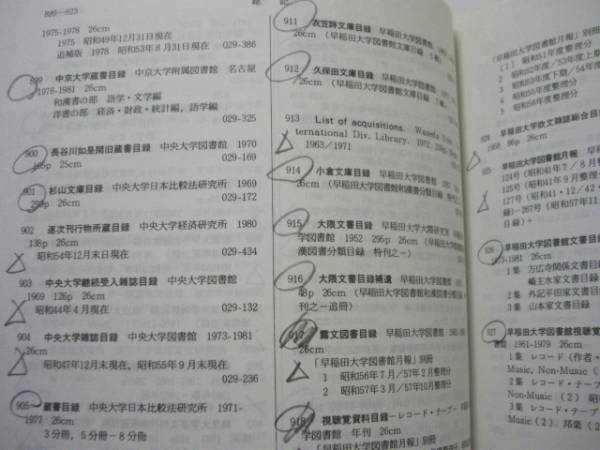 899—923
総
記
1975-1978 26cm
1975 昭和49年12月31日現在
追補版 1978 昭和53年8月31日現在 029-386
899 中京大学蔵書目録 中京大学附属図書館 名古屋
1976-1981 26cm
和漢書の部 語学・文学編
洋書の部 経済・財政・統計編, 語学編
029-325
900 長谷川如是閑旧蔵書目録 中央大学図書館 1970
25cm 029-169
901 杉山文庫目録 中央大学日本比較法研究所 1969
26cm 029-172
902 逐次刊行物所蔵目録 中央大学経済研究所 1980
138p 26cm
昭和54年12月末日現在 029-434
903 中央大学継続受入雑誌目録 中央大学図書館
1969 126p 26cm
昭和44年4月現在 029-132
904 中央大学雑誌目録 中央大学図書館 1973-1981
26cm
昭和47年12月末現在, 昭和55年9月末現在
029-236
905 蔵書目録 中央大学日本比較法研究所 1971-
1977 26cm
3分冊, 5分冊−8分冊
911 衣笠詩文庫目録 早稲田大学図書館
26cm (早稲田大学図書館文庫目録
912 久保田文庫目録 早稲田大学図書館
26cm (早稲田大学図書館文庫目録
913 List of acquisitions. Waseda
ternational Div. Library. 1972.
1963/1971
914 小倉文庫目録 早稲田大学図書館
26cm (早稲田大学図書館和漢書分類目録
915 大隈文書目録 早稲田大学大隈研究室
学図書館 1952 295p 26cm (早稲田大
漢図書分類目録 特刊之一)
916 大隈文書目録補遺 早稲田大学図書館
48p 26cm (早稲田大学図書館
刊之一追冊)
917 露文図書目録 早稲田大学図書館
26cm
「早稲田大学図書館月報」別冊
1 昭和56年7月/57年2月整理分
2 昭和57年3月/57年10月整理分
918 視聴覚資料目録—レコード・テープ—
学図書館 年刊 26cm
「早稲田大学図書館月報」別冊
「早稲田大学図書館月報」別冊
(1) 昭和51年度整理分
2 昭和52年度/53年度上
3 昭和53年度下期/54年度
4 昭和55年度整理分
5 昭和56年度整理分
早稲田大学欧文雑誌総合目
96p 26cm
925 早稲田大学図書館月報
124号 (昭和41年7/8月
125号 (昭和41年9月整理
127号 (昭和41・12/42・
録)−267号 (昭和57年11月
926 早稲田大学図書館文書目録
23cm
1集 方広寺関係文書目録
2集
3集 山本家文書目録
927 早稲田大学図書館視聴覚
書館 1961-1979 26cm
1集 レコード (作者・
Music, Non-Music (1
2集 レコード
Non-Music (2) 昭和
Music (2) 邦楽 (2